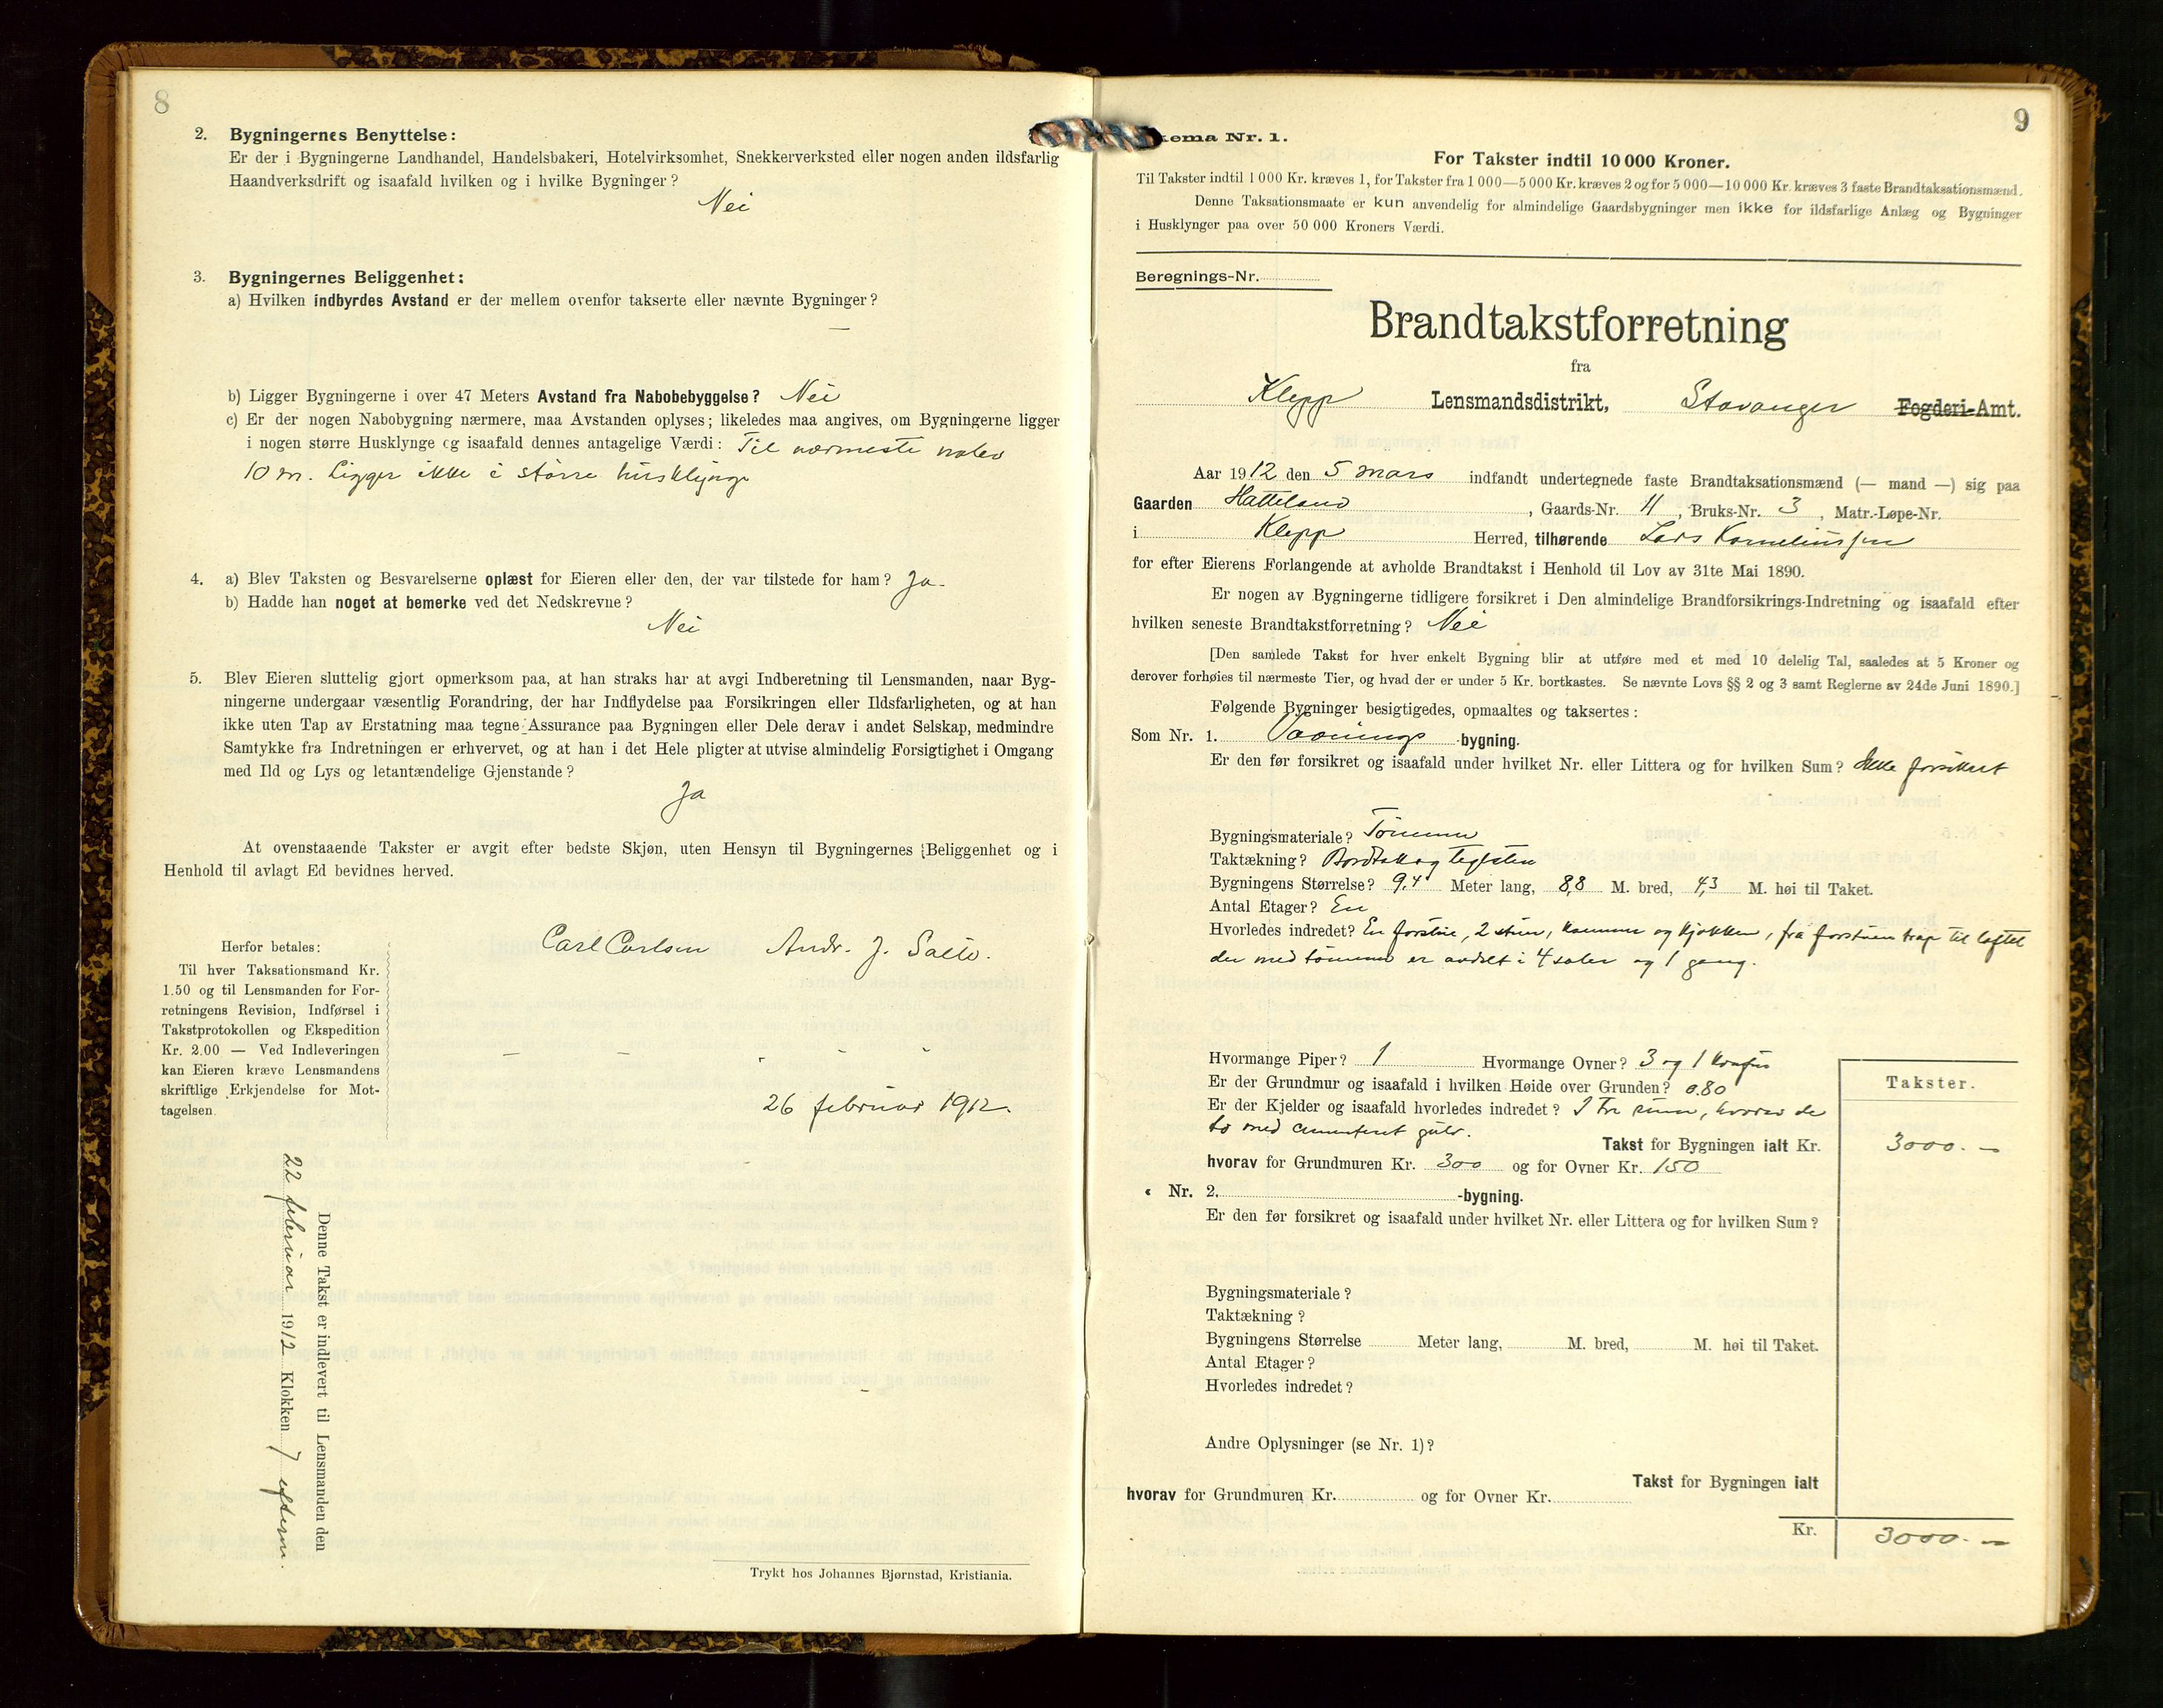 8
2. Bygningernes Benyttelse:
Er der i Bygningerne Landhandel, Handelsbakeri, Hotelvirksomhet, Snekkerverksted eller nogen anden ildsfarlig
Haandverksdrift og isaafald hvilken og i hvilke Bygninger?
Nei
3. Bygningernes Beliggenhet:
a) Hvilken indbyrdes Avstand er der mellem ovenfor takserte eller nævnte Bygninger?
—
b) Ligger Bygningerne i over 47 Meters Avstand fra Nabobebyggelse? Nei
c) Er der nogen Nabobygning nærmere, maa Avstanden oplyses; likeledes maa angives, om Bygningerne ligger
i nogen større Husklynge og isaafald dennes antagelige Værdi: Til nærmeste nabo
10 m. Ligger ikke i större husklynge
4. a) Blev Taksten og Besvarelserne oplæst for Eieren eller den, der var tilstede for ham? Ja.
b) Hadde han noget at bemerke ved det Nedskrevne?
Nei
5. Blev Eieren sluttelig gjort opmerksom paa, at han straks har at avgi Indberetning til Lensmanden, naar Byg-
ningerne undergaar væsentlig Forandring, der har Indflydelse paa Forsikringen eller Ildsfarligheten, og at han
ikke uten Tap av Erstatning maa tegne Assurance paa Bygningen eller Dele derav i andet Selskap, medmindre
Samtykke fra Indretningen er erhvervet, og at han i det Hele pligter at utvise almindelig Forsigtighet i Omgang
med Ild og Lys og letantændelige Gjenstande?
Ja
At ovenstaaende Takster er avgit efter bedste Skjøn, uten Hensyn til Bygningernes Beliggenhet og i
Henhold til avlagt Ed bevidnes herved.
Carl Carlsen Andr. J. Salte.
Herfor betales:
Til hver Taksationsmand Kr.
1.50 og til Lensmanden for For-
retningens Revision, Indførsel i
Takstprotokollen og Ekspedition
Kr. 2.00 — Ved Indleveringen
kan Eieren kræve Lensmandens
skriftlige Erkjendelse for Mot-
tagelsen.
26 februar 1912.
Denne Takst er indlevert til Lensmanden den
22 februar 1912 Klokken 7 efterm.
Trykt hos Johannes Bjørnstad, Kristiania.
9
kema Nr. 1.
For Takster indtil 10 000 Kroner.
Til Takster indtil 1 000 Kr. kræves 1, for Takster fra 1 000—5 000 Kr. kræves 2 og for 5 000—10 000 Kr. kræves 3 faste Brandtaksationsmænd.
Denne Taksationsmaate er kun anvendelig for almindelige Gaardsbygninger men ikke for ildsfarlige Anlæg og Bygninger
i Husklynger paa over 50 000 Kroners Værdi.
Beregnings-Nr.
Brandtakstforretning
fra
Klepp Lensmandsdistrikt, Stavanger Fogderi-Amt.
Aar 1912 den 5 mars indfandt undertegnede faste Brandtaksationsmænd (— mand —) sig paa
Gaarden Hatteland, Gaards-Nr. 11, Bruks-Nr. 3, Matr.-Løpe-Nr.
i Klepp Herred, tilhørende Lars Korneliussen
for efter Eierens Forlangende at avholde Brandtakst i Henhold til Lov av 31te Mai 1890.
Er nogen av Bygningerne tidligere forsikret i Den almindelige Brandforsikrings-Indretning og isaafald efter
hvilken seneste Brandtakstforretning? Nei
[Den samlede Takst for hver enkelt Bygning blir at utføre med et med 10 delelig Tal, saaledes at 5 Kroner og
derover forhøies til nærmeste Tier, og hvad der er under 5 Kr. bortkastes. Se nævnte Lovs §§ 2 og 3 samt Reglerne av 24de Juni 1890.]
Følgende Bygninger besigtigedes, opmaaltes og taksertes:
Som Nr. 1. Vaanings-bygning.
Er den før forsikret og isaafald under hvilket Nr. eller Littera og for hvilken Sum? Ikke forsikret
Bygningsmateriale? Tömmer
Taktækning? Bordtak og teglsten
Bygningens Størrelse? 9,4 Meter lang, 8,8 M. bred, 4,3 M. høi til Taket.
Antal Etager? En
Hvorledes indredet? En forstue, 2 stuer, kammer og kjökken, fra forstuen trap til loftet
der med tömmer er avdelt i 4 saler og 1 gang.
Hvormange Piper? 1 Hvormange Ovner? 3 og 1 komfur
Er der Grundmur og isaafald i hvilken Høide over Grunden? 0.80
Er der Kjelder og isaafald hvorledes indredet? I tre rum, hvorav de
to med cementert gulv.
Takst for Bygningen ialt Kr.
Takster.
3000.—
hvorav for Grundmuren Kr. 300 og for Ovner Kr. 150
« Nr. 2. -bygning.
Er den før forsikret og isaafald under hvilket Nr. eller Littera og for hvilken Sum?
Bygningsmateriale?
Taktækning?
Bygningens Størrelse Meter lang, M. bred, M. høi til Taket.
Antal Etager?
Hvorledes indredet?
Andre Oplysninger (se Nr. 1)?
Takst for Bygningen ialt
hvorav for Grundmuren Kr. og for Ovner Kr.
Kr. 3000.—